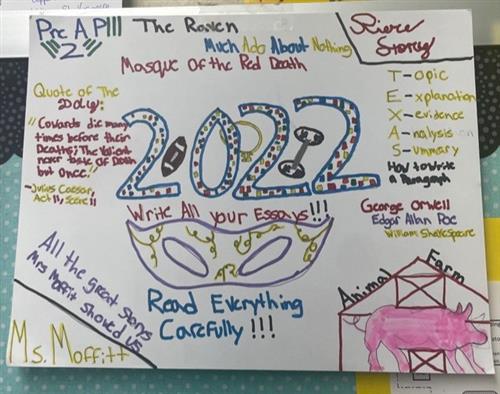 Pre AP!!!
2
The Raven
Much Ado About Nothing
Masque Of the Red Death
Riere
Storey
Quote of The
Day:
"Cowards die many
times before their
Deaths; The Valient
never taste of Death
but Once."
-Julius Caesar,
Act II, Scene II
2022
T-opic
E-xplanation
X-evidence
A-nalysis
S-ummary
How to Write
a Paragraph
George Orwell
Edgar Allan Poe
William Shakespeare
Write All your Essays!!!
All the great storys
Mrs Moffit Showed Us
Ms. Moffitt
Read Everything
Carefully!!!
Animal Farm